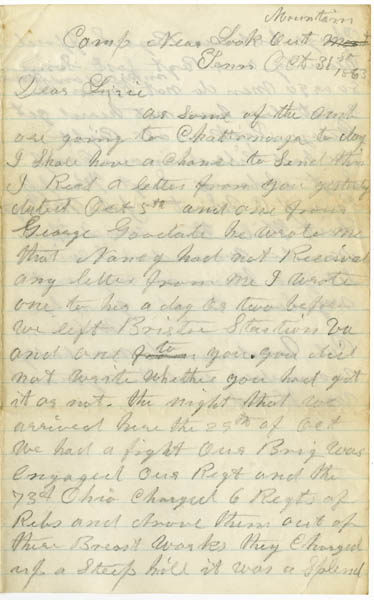 Mountain
Camp Near Look Out
Tenn Oct 31st 1863
Dear
as some of the
are going to Chattanooga to day
I Shall have a Chance to Send this
I Recd a letter from you yesterday
dated Oct 5th and one from
George Goodale he wrote me
that Nancy had not Received
any letter from me I wrote
one to her a day or two before
we left Bristie Station Va
and one to you you did
not write whether you had got
it or not. the night that we
arrived here the 29th of Oct
We had a fight Our Brig was
Engaged Our Regt and the
73d Ohio Charged 6 Regts of
Rebs and drove them out of
there Breast Works they Charged
up a Steep hill it was a Splend